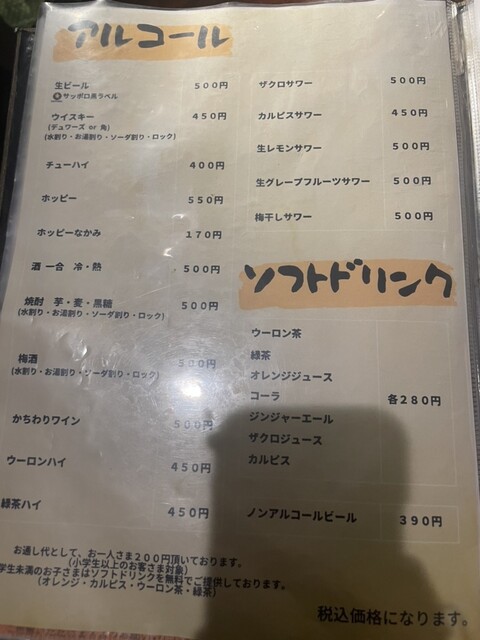 アルコール
生ビール 500円
サッポロ黒ラベル
ウイスキー 450円
(デュワーズ or 角)
(水割り・お湯割り・ソーダ割り・ロック)
チューハイ 400円
ホッピー 550円
ホッピーなかみ 170円
酒 一合 冷・熱 500円
焼酎 芋・麦・黒糖 500円
(水割り・お湯割り・ソーダ割り・ロック)
梅酒 500円
(水割り・お湯割り・ソーダ割り・ロック)
かちわりワイン 500円
ウーロンハイ 450円
緑茶ハイ 450円
ザクロサワー 500円
カルピスサワー 450円
生レモンサワー 500円
生グレープフルーツサワー 500円
梅干しサワー 500円
ソフトドリンク
ウーロン茶
緑茶
オレンジジュース
コーラ 各280円
ジンジャーエール
ザクロジュース
カルピス
ノンアルコールビール 390円
お通し代として、お一人さま200円頂いております。
(小学生以上のお客さま対象)
学生未満のお子さまはソフトドリンクを無料でご提供しております。
(オレンジ・カルピス・ウーロン茶・緑茶)
税込価格になります。